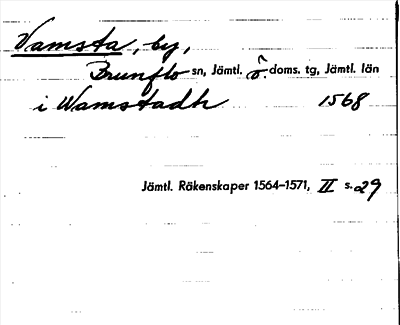 Vamsta, by,
Brunflo sn, Jämtl. ö. doms. tg, Jämtl. län
i Wamstadh 1568
Jämtl. Räkenskaper 1564–1571, II s. 29